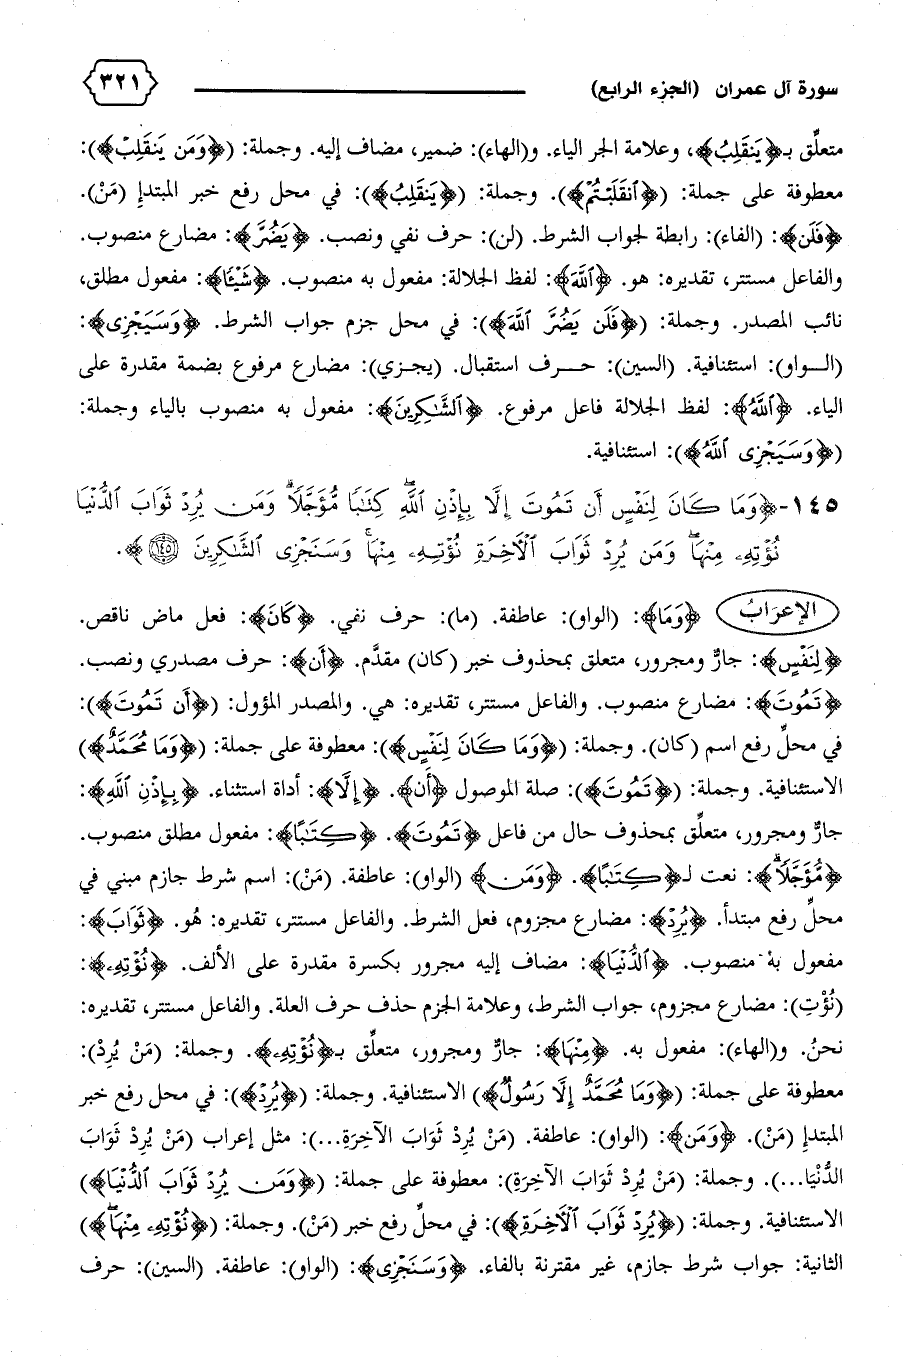 سورة آل عمران (الجزء الرابع) ٣٢١
متعلِّق بـ﴿يَنقَلِبْ﴾، وعلامة الجر الياء. و(الهاء): ضمير، مضاف إليه. وجملة: (﴿وَمَن يَنقَلِبْ﴾):
معطوفة على جملة: (﴿ٱنقَلَبْتُمْ﴾). وجملة: (﴿يَنقَلِبْ﴾): في محل رفع خبر المبتدإ (مَنْ).
﴿فَلَن﴾: (الفاء): رابطة لجواب الشرط. (لن): حرف نفي ونصب. ﴿يَضُرَّ﴾: مضارع منصوب.
والفاعل مستتر، تقديره: هو. ﴿ٱللَّهَ﴾: لفظ الجلالة: مفعول به منصوب. ﴿شَيْـًٔا﴾: مفعول مطلق،
نائب المصدر. وجملة: (﴿فَلَن يَضُرَّ ٱللَّهَ﴾): في محل جزم جواب الشرط. ﴿وَسَيَجْزِى﴾:
(الـواو): استئنافية. (السين): حـرف استقبال. (يجـزي): مضارع مرفوع بضمة مقدرة على
الياء. ﴿ٱللَّهُ﴾: لفظ الجلالة فاعل مرفوع. ﴿ٱلشَّـٰكِرِينَ﴾: مفعول به منصوب بالياء وجملة:
(﴿وَسَيَجْزِى ٱللَّهُ﴾): استئنافية.
١٤٥-﴿وَمَا كَانَ لِنَفْسٍ أَن تَمُوتَ إِلَّا بِإِذْنِ ٱللَّهِ كِتَـٰبًا مُّؤَجَّلًا ۗ وَمَن يُرِدْ ثَوَابَ ٱلدُّنْيَا
نُؤْتِهِۦ مِنْهَا ۖ وَمَن يُرِدْ ثَوَابَ ٱلْـَٔاخِرَةِ نُؤْتِهِۦ مِنْهَا ۚ وَسَنَجْزِى ٱلشَّـٰكِرِينَ ١٤٥﴾.
الإعرَابُ ﴿وَمَا﴾: (الواو): عاطفة. (ما): حرف نفي. ﴿كَانَ﴾: فعل ماض ناقص.
﴿لِنَفْسٍ﴾: جارٌّ ومجرور، متعلق بمحذوف خبر (كان) مقدَّم. ﴿أَن﴾: حرف مصدري ونصب.
﴿تَمُوتَ﴾: مضارع منصوب. والفاعل مستتر، تقديره: هي. والمصدر المؤول: (﴿أَن تَمُوتَ﴾):
في محلِّ رفع اسم (كان). وجملة: (﴿وَمَا كَانَ لِنَفْسٍ﴾): معطوفة على جملة: (﴿وَمَا مُحَمَّدٌ﴾)
الاستئنافية. وجملة: (﴿تَمُوتَ﴾): صلة الموصول ﴿أَن﴾. ﴿إِلَّا﴾: أداة استثناء. ﴿بِإِذْنِ ٱللَّهِ﴾:
جارٌّ ومجرور، متعلِّق بمحذوف حال من فاعل ﴿تَمُوتَ﴾. ﴿كِتَـٰبًا﴾: مفعول مطلق منصوب.
﴿مُّؤَجَّلًا ۗ﴾: نعت لـ﴿كِتَـٰبًا﴾. ﴿وَمَن﴾ (الواو): عاطفة. (مَنْ): اسم شرط جازم مبني في
محلِّ رفع مبتدأ. ﴿يُرِدْ﴾: مضارع مجزوم، فعل الشرط. والفاعل مستتر، تقديره: هُو. ﴿ثَوَابَ﴾:
مفعول به منصوب. ﴿ٱلدُّنْيَا﴾: مضاف إليه مجرور بكسرة مقدرة على الألف. ﴿نُؤْتِهِۦ﴾:
(نُؤْتِ): مضارع مجزوم، جواب الشرط، وعلامة الجزم حذف حرف العلة. والفاعل مستتر، تقديره:
نحنُ. و(الهاء): مفعول به. ﴿مِنْهَا﴾: جارٌّ ومجرور، متعلِّق بـ﴿نُؤْتِهِۦ﴾. وجملة: (مَنْ يُرِدْ):
معطوفة على جملة: (﴿وَمَا مُحَمَّدٌ إِلَّا رَسُولٌ﴾) الاستئنافية. وجملة: (﴿يُرِدْ﴾): في محل رفع خبر
المبتدإ (مَنْ). ﴿وَمَن﴾: (الواو): عاطفة. (مَنْ يُرِدْ ثَوَابَ الآخِرَةِ...): مثل إعراب (مَنْ يُرِدْ ثَوَابَ
الدُّنْيَا...). وجملة: (مَنْ يُرِدْ ثَوَابَ الآخِرَةِ): معطوفة على جملة: (﴿وَمَن يُرِدْ ثَوَابَ ٱلدُّنْيَا﴾)
الاستئنافية. وجملة: (﴿يُرِدْ ثَوَابَ ٱلْـَٔاخِرَةِ﴾): في محلِّ رفع خبر (مَنْ). وجملة: (﴿نُؤْتِهِۦ مِنْهَا ۖ﴾)
الثانية: جواب شرط جازم، غير مقترنة بالفاء. ﴿وَسَنَجْزِى﴾: (الواو): عاطفة. (السين): حرف